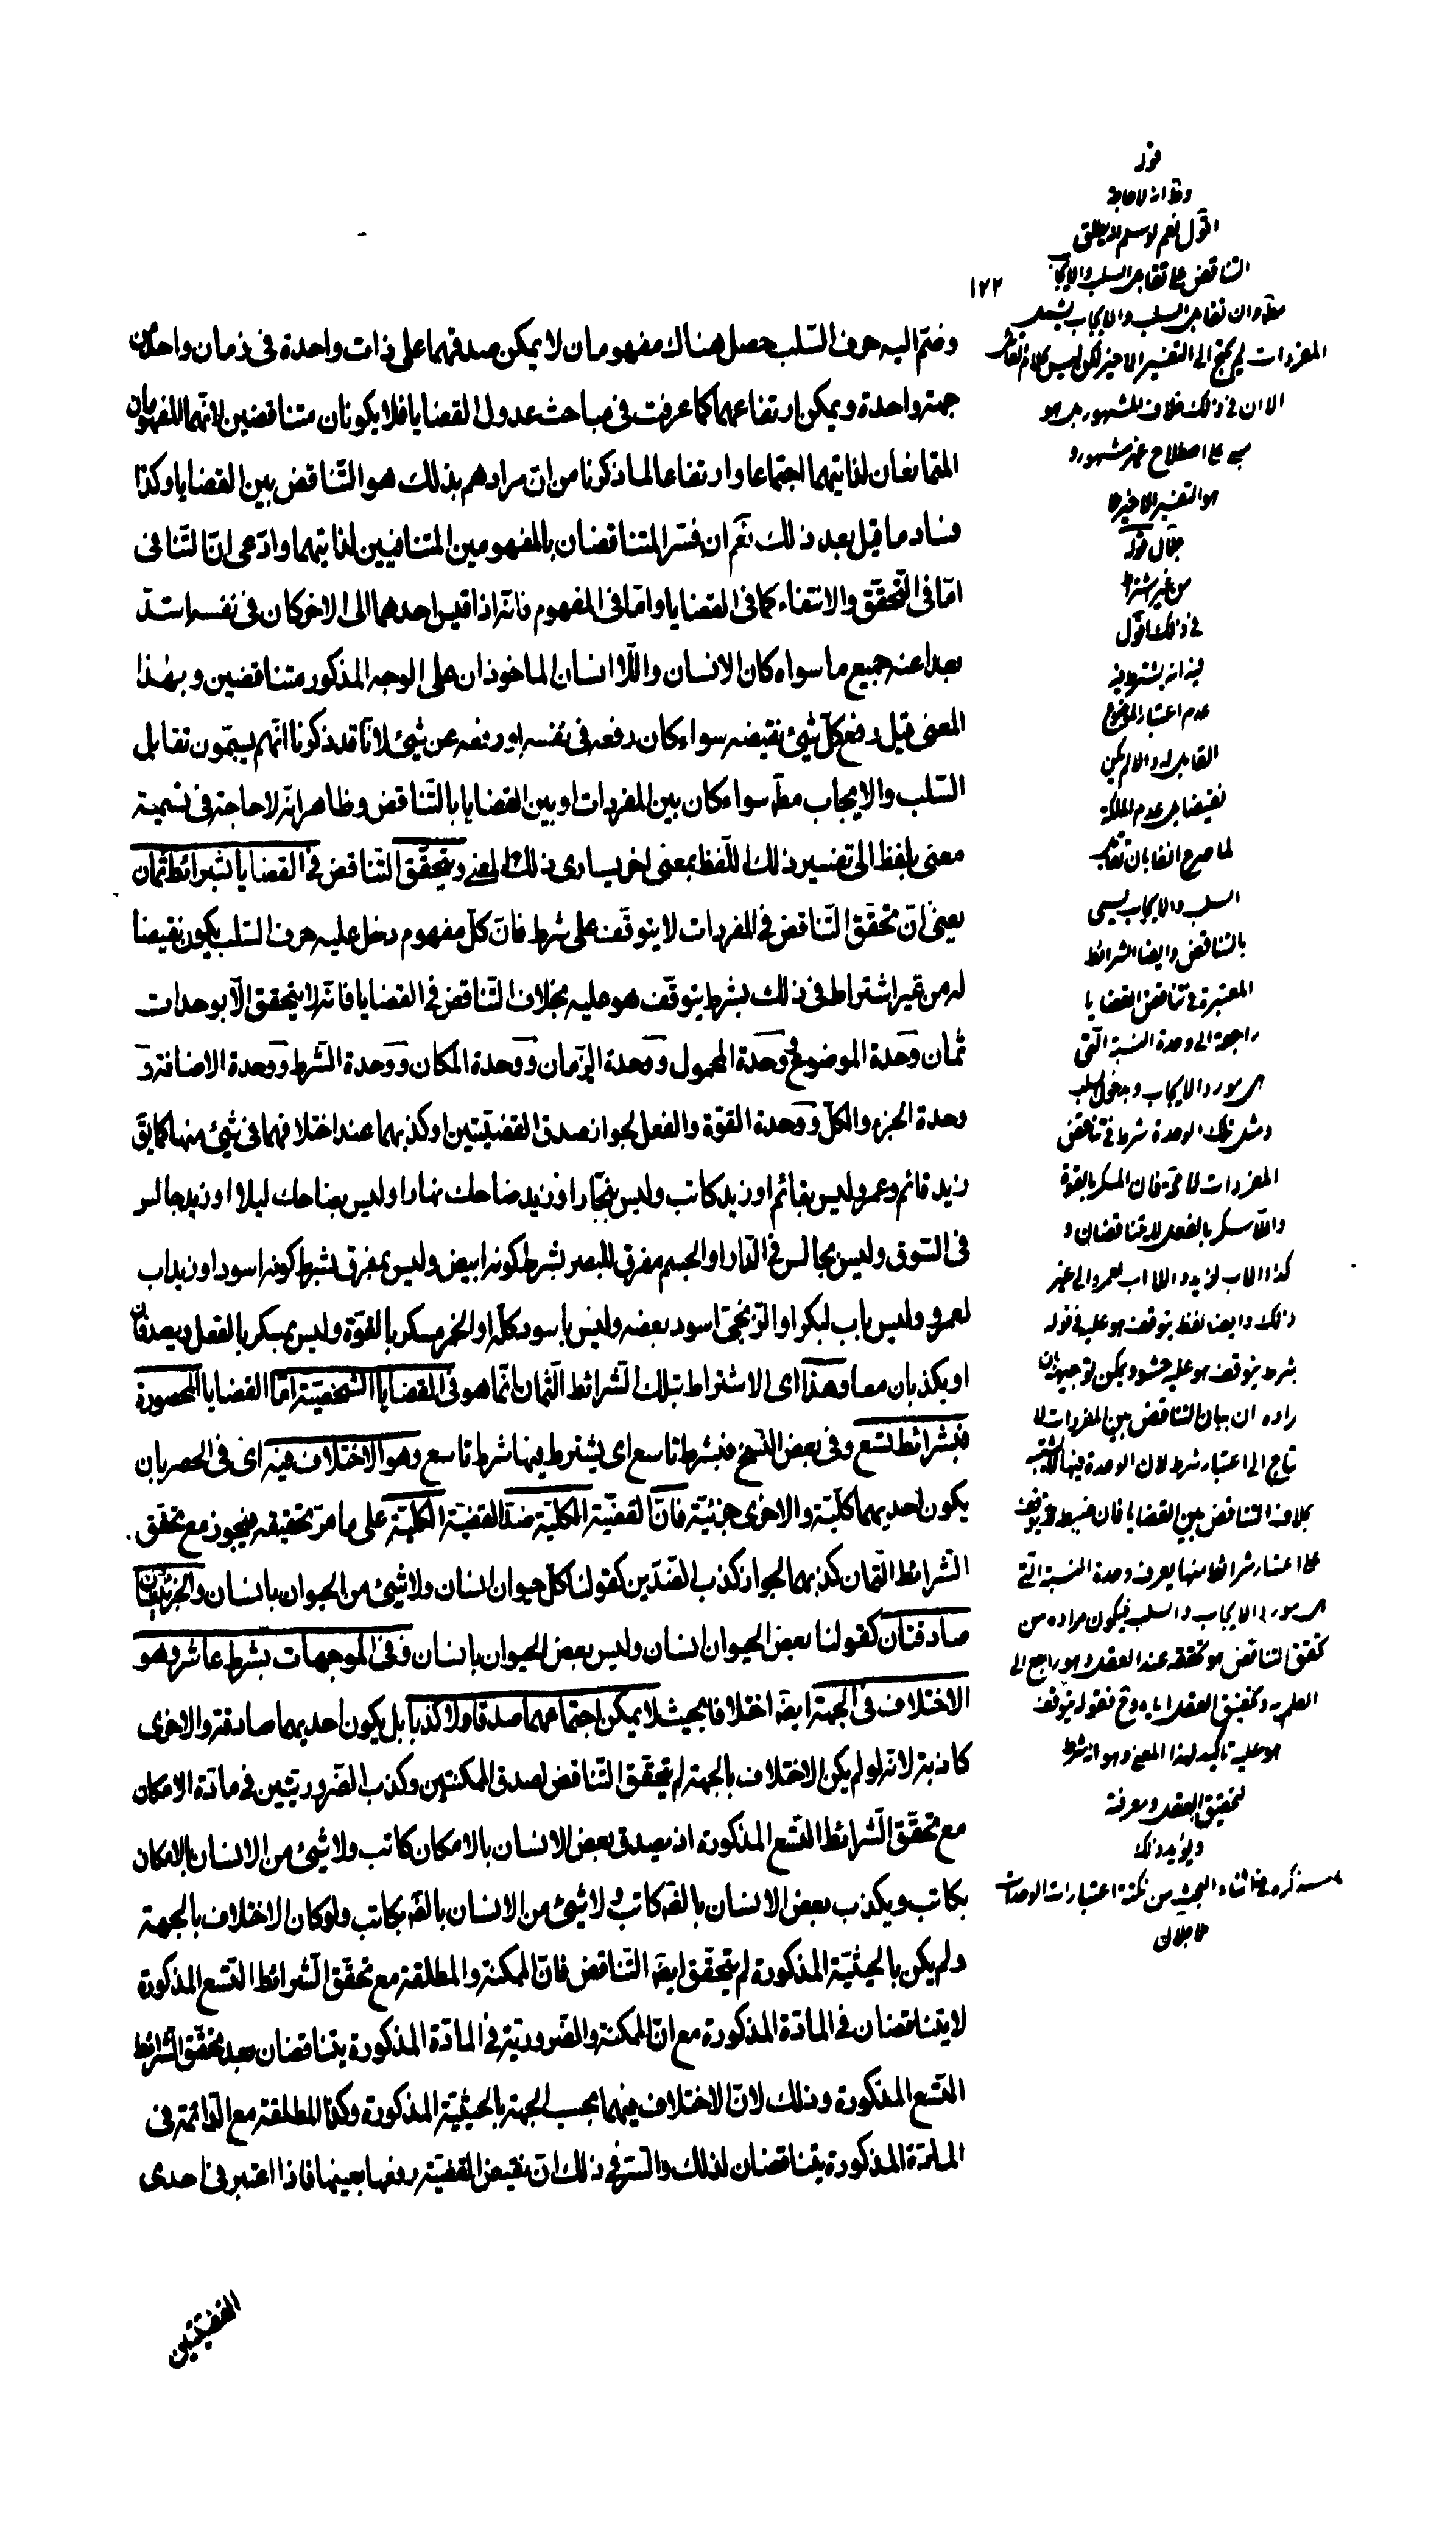 ١٢٢
وضمّ اليه حرف السّلب حصل هناك مفهومان لا يمكن صدقهما على ذات واحدة فى زمان واحد من
جهة واحدة ويمكن ارتفاعهما كما عرفت فى مباحث عدول القضايا فلا يكونان متناقضين لانّهما المفهومان
المتمانعان لذاتيهما اجتماعا وارتفاعا لما ذكرنا من انّ مرادهم بذلك هو التّناقض بين القضايا وكذا
فساد ما قيل بعد ذلك نعم ان فسّر المتناقضان بالمفهومين المتنافيين لذاتيهما وادّعى انّ التّنافى
امّا فى التّحقّق والانتفاء كما فى القضايا وامّا فى المفهوم فانّه اذا اقيس احدهما الى الاخر كان فى نفسه اشدّ
بعدا عنه جميع ما سواه كان الانسان واللّا انسان الماخوذان على الوجه المذكور متناقضين وبهذا
المعنى قيل رفع كلّ شيئ نقيضه سواء كان رفعه فى نفسه او رفعه عن شيئ لانّا قد ذكرنا انّهم يسمّون تقابل
السّلب والايجاب مطّ سواء كان بين المفردات او بين القضايا بالتّناقض وظاهر انّه لا حاجة فى تسمية
معنى بلفظ الى تفسير ذلك اللّفظ بمعنى اخر يساوى ذلك المعنى ويتحقّق التّناقض فى القضايا بشرائط ثمان
يعنى انّ تحقّق التّناقض فى المفردات لا يتوقّف على شرط فانّ كلّ مفهوم دخل عليه حرف السّلب يكون نقيضا
له من غير اشتراط فى ذلك بشرط يتوقّف هو عليه بخلاف التّناقض فى القضايا فانّه لا يتحقق الّا بوحدات
ثمان وحدة الموضوع ووحدة المحمول ووحدة الزّمان ووحدة المكان ووحدة الشّرط ووحدة الاضافة و
وحدة الجزء والكلّ ووحدة القوّة والفعل لجواز صدق القضيّتين او كذبهما عند اختلافهما فى شيئ منها كما يقّ
زيد قائم وعمرو ليس بقائم او زيد كاتب وليس بنجّار او زيد ضاحك نهارا وليس بضاحك ليلا او زيد جالس
فى السّوق وليس بجالس فى الدّار او الجسم مفرق للبصر بشرط كونه ابيض وليس بمفرق بشرط كونه اسود او زيد اب
لعمرو وليس باب لبكر او الزّنجىّ اسود بعضه وليس باسود كلّه او الخمر مسكر بالقوّة وليس بمسكر بالفعل ويصدقان
او يكذبان معا وهذا اى الاشتراط بتلك الشّرائط الثّمان انّما هو فى القضايا الشّخصيّة امّا القضايا المحصورة
فبشرائط تسع وفى بعض النّسخ فبشرط تاسع اى يشترط فيها شرط تاسع وهو الاختلاف فيه اى فى الحصر بان
يكون احديهما كلّيّة والاخرى جزئيّة فانّ القضيّة الكلّيّة ضدّ القضيّة الكلّيّة على ما مرّ تحقيقه فيجوز مع تحقق
الشّرائط الثّمان كذبهما لجواز كذب الضّدّين كقولنا كلّ حيوان انسان ولا شيئ من الحيوان بانسان والجزئيّتان
صادقتان كقولنا بعض الحيوان انسان وليس بعض الحيوان بانسان وفى الموجهات بشرط عاشر وهو
الاختلاف فى الجهة ايضّ اختلافا بحيث لا يمكن اجتماعهما صدقا ولا كذبا بل يكون احديهما صادقة والاخرى
كاذبة لانّه لو لم يكن الاختلاف بالجهة لم يتحقّق التّناقض لصدق الممكنتين وكذب الضّروريّتين فى مادّة الامكان
مع تحقّق الشّرائط التّسع المذكورة اذ يصدق بعض الانسان بالامكان كاتب ولا شيئ من الانسان بالامكان
بكاتب ويكذب بعض الانسان بالضّه كاتب ولا شيئ من الانسان بالضّه بكاتب ولو كان الاختلاف بالجهة
ولم يكن بالحيثيّة المذكورة لم يتحقّق ايضّ التّناقض فانّ الممكنة والمطلقة مع تحقّق الشّرائط التّسع المذكورة
لا يتناقضان فى المادّة المذكورة مع انّ الممكنة والضّروريّة فى المادّة المذكورة يتناقضان بعد تحقّق الشّرائط
التّسع المذكورة وذلك لانّ الاختلاف بينهما بحسب الجهة بالحيثيّة المذكورة وكذا المطلقة مع الدّائمة فى
المادّة المذكورة يتناقضان لذلك والسّرّ فى ذلك انّ نقيض القضيّة رفعها بعينها فاذا اعتبر فى احدى
القضيّتين
قوله
وظ انه لا حاجة
اقول نعم لو سلم انه يطلق
التناقض على تقابل السلب والايجاب
مطّ وان تقابل السلب والايجاب يشمل
المفردات لم يحتج الى التفسير الاخير لكن ليس كلام
الا ان فى ذلك خلاف المشهور بل هو
مبنى على اصطلاح غير مشهور و
هو التفسير الاخير
جمال قوله
من غير اشتراط
فى ذلك اقول
فيه انه يشترط فيه
عدم اعتبار الموضوع
القابل له والا لم يكن
نقيضا بل عدم الملكة
لما صرح انفا بان تقابل
السلب والايجاب يسمى
بالتناقض وايضا الشرائط
المعتبرة فى تناقض القضايا
راجعة الى وحدة النسبة التى
هى مورد الايجاب وبدخول السلب
ومثل تلك الوحدة شرط فى تناقض
المفردات فان المسكر بالقوة
واللا مسكر بالفعل لا يتناقضان و
كذا الاب لزيد واللا اب لعمرو الى غير
ذلك وايضا لفظ يتوقف هو عليه فى قوله
بشرط يتوقف هو عليه حشو ويمكن توجيهه بان
مراده ان بيان التناقض بين المفردات لا
يحتاج الى اعتبار شرط لان الوحدة فيها
بخلاف التناقض بين القضايا فان ضبطه يتوقف
على اعتبار شرائط منها يعرف وحدة النسبة التى
هى مورد الايجاب والسلب فيكون مراده من
تحقق التناقض هو تحققه عند العقل وهو راجع الى
العلم به وتحقيق العقل اياه وح فقوله يتوقف
هو عليه تاكيد لهذا المعنى وهو انه شرط
لتحقيق العقل ومعرفته
ويؤيد ذلك
ما سنذكره فى اثناء البحث من نكتة اعتبارات الوحدات